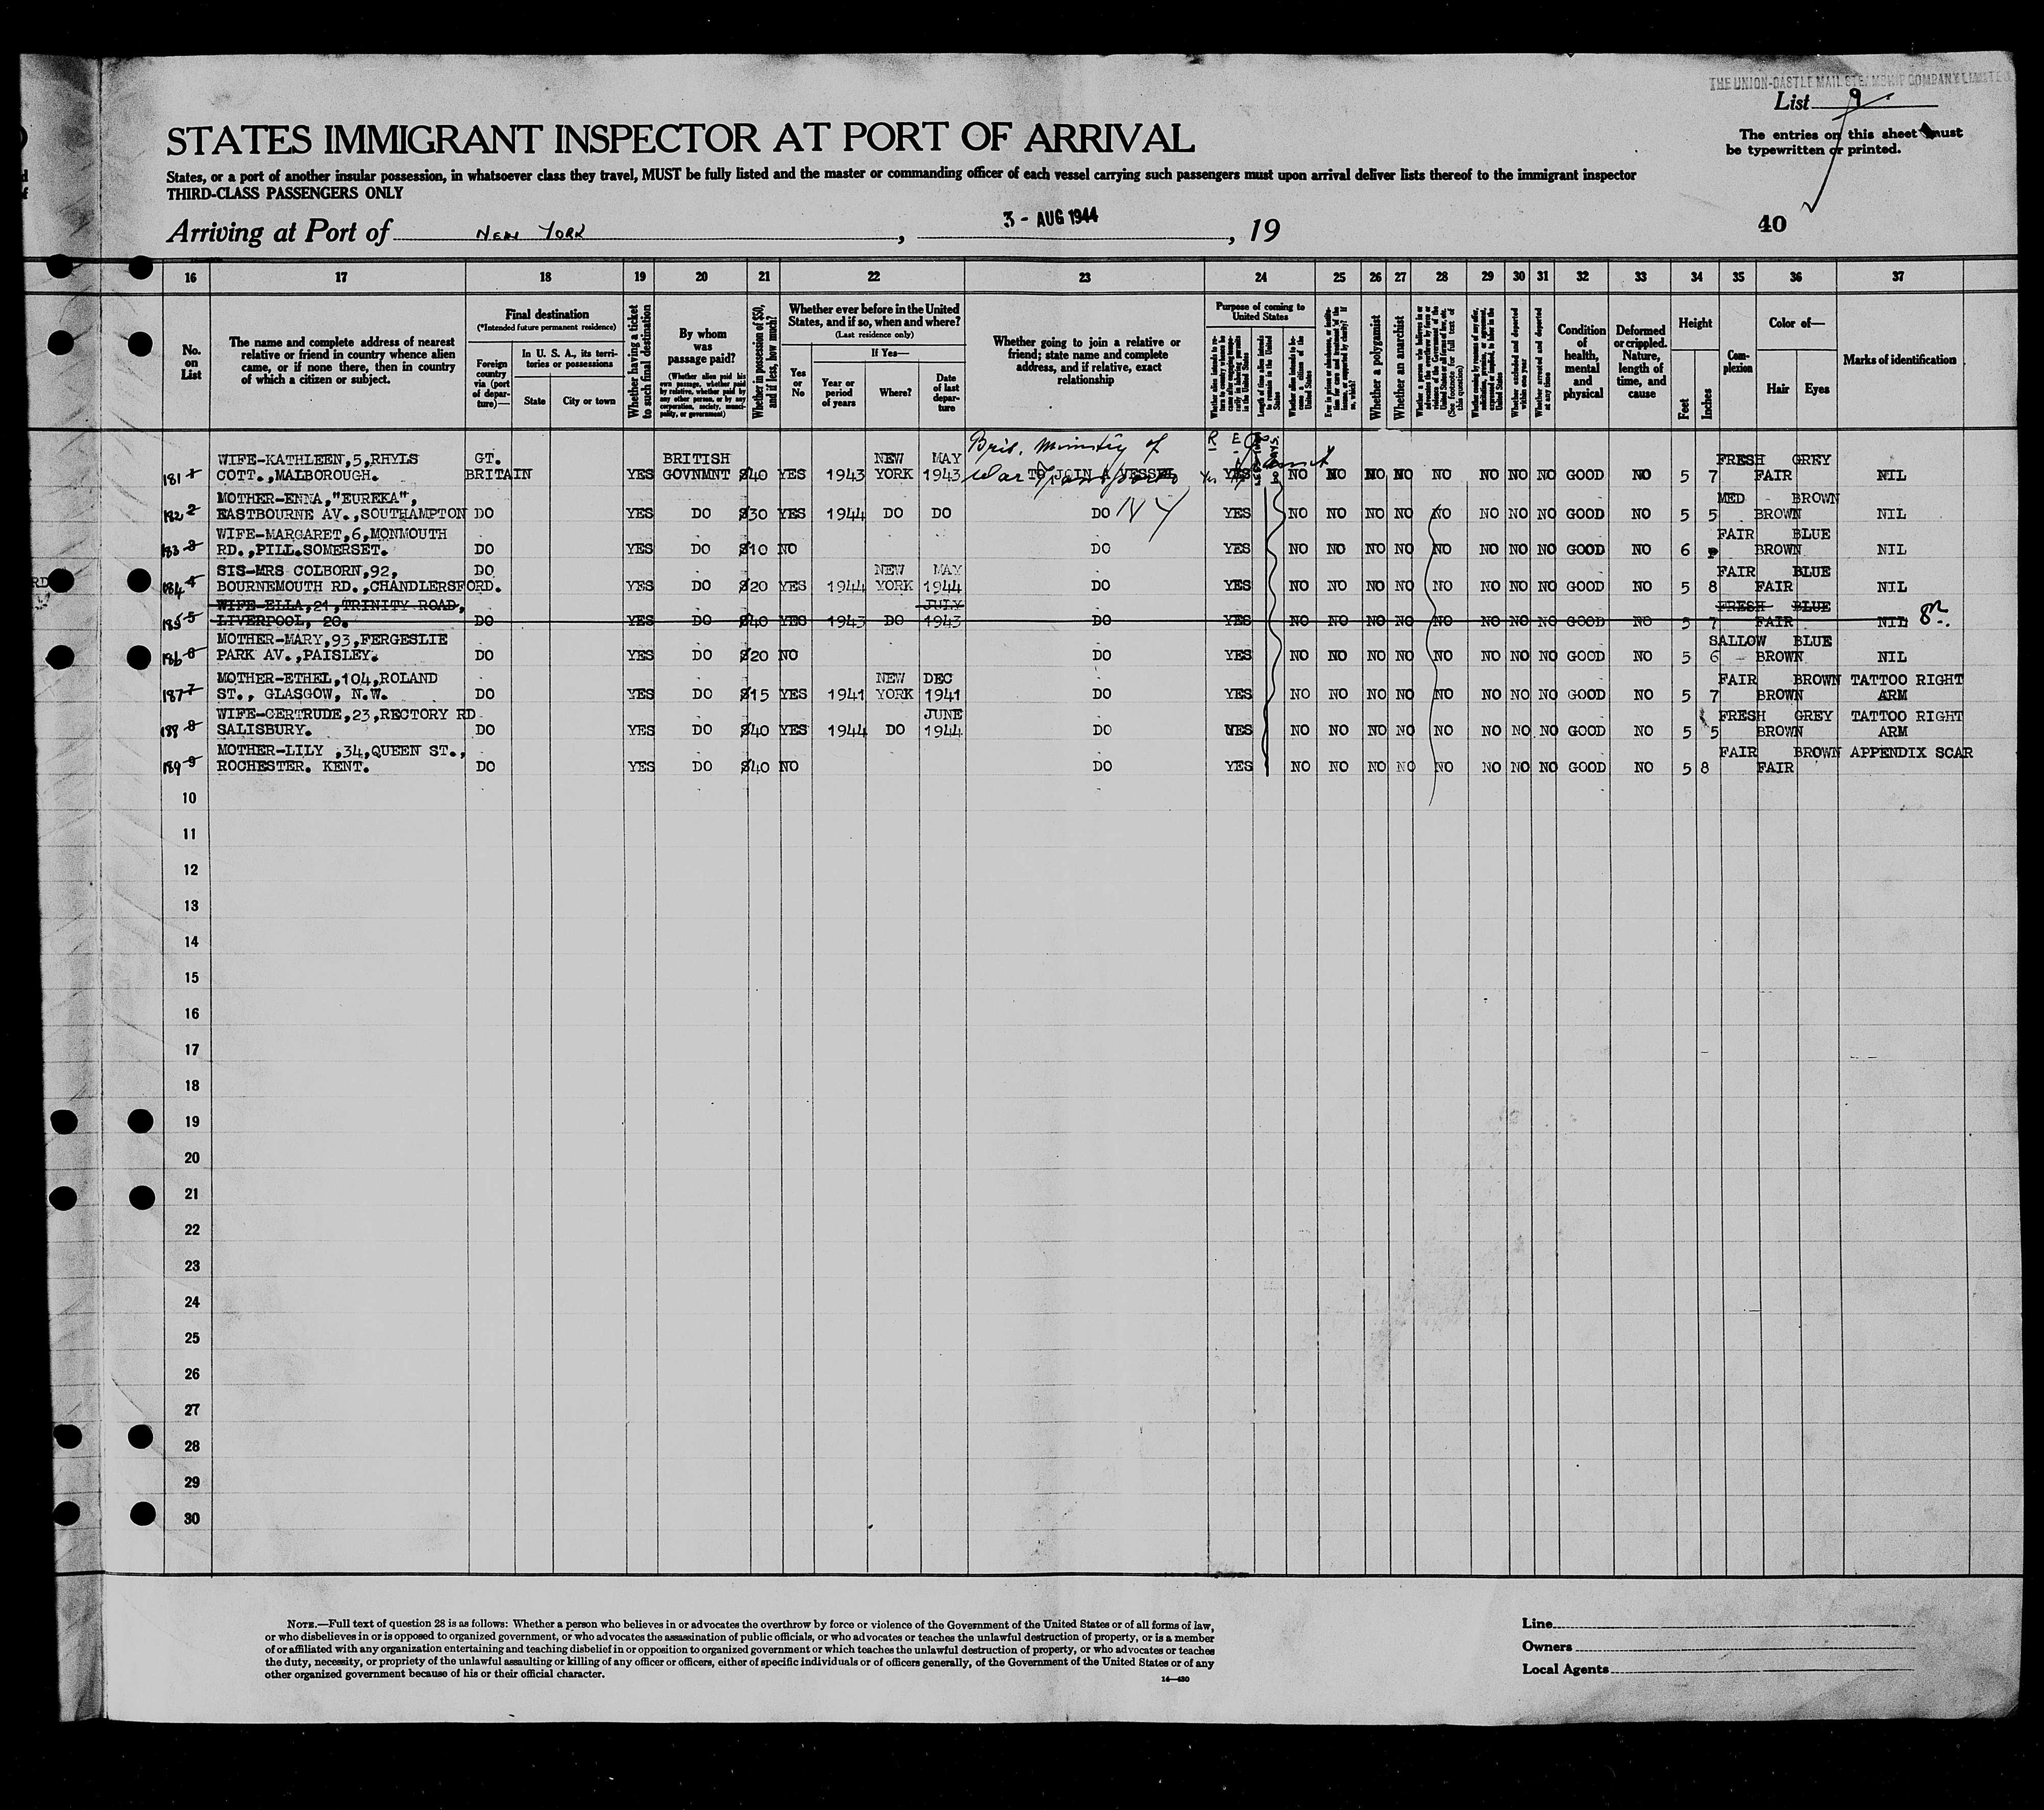 THE UNION-CASTLE MAIL STEAMSHIP COMPANY LIMITED
List 9
STATES IMMIGRANT INSPECTOR AT PORT OF ARRIVAL
The entries on this sheet must
be typewritten or printed.
States, or a port of another insular possession, in whatsoever class they travel, MUST be fully listed and the master or commanding officer of each vessel carrying such passengers must upon arrival deliver lists thereof to the immigrant inspector
THIRD-CLASS PASSENGERS ONLY
Arriving at Port of NEW YORK, 3 - AUG 1944, 19
40
16 17 18 19 20 21 22 23 24 25 26 27 28 29 30 31 32 33 34 35 36 37
No. on List
The name and complete address of nearest relative or friend in country whence alien came, or if none there, then in country of which a citizen or subject.
Final destination
(*Intended future permanent residence)
Foreign country via (port of departure)—
In U. S. A., its territories or possessions
State
City or town
Whether having a ticket to such final destination
By whom was passage paid?
(Whether alien paid his own passage, whether paid by relative, whether paid by any other person, or by any corporation, society, municipality, or government)
Whether in possession of $50, and if less, how much?
Whether ever before in the United States, and if so, when and where?
(Last residence only)
Yes or No
If Yes—
Year or period of years
Where?
Date of last departure
Whether going to join a relative or friend; state name and complete address, and if relative, exact relationship
Purpose of coming to United States
Length of time alien intends to remain in the United States
Whether alien intends to become a citizen of the United States
Whether a polygamist
Whether an anarchist
(See footnote for full text of this question)
Whether arrested and deported at any time
Condition of health, mental and physical
Deformed or crippled. Nature, length of time, and cause
Height
Feet
Inches
Complexion
Color of—
Hair
Eyes
Marks of identification
Brit. Ministry of
War Transport
N Y
WIFE-KATHLEEN,5,RHYLS GT. BRITISH NEW MAY FRESH GREY
181 1 COTT.,MALBOROUGH. BRITAIN YES GOVNMNT $40 YES 1943 YORK 1943 TO JOIN A VESSEL YES NO NO NO NO NO NO NO NO GOOD NO 5 7 FAIR NIL
MOTHER-ENNA,"EUREKA", MED BROWN
182 2 EASTBOURNE AV.,SOUTHAMPTON DO YES DO $30 YES 1944 DO DO DO YES NO NO NO NO NO NO NO NO GOOD NO 5 5 BROWN NIL
WIFE-MARGARET,6,MONMOUTH FAIR BLUE
183 3 RD.,PILL.SOMERSET. DO YES DO $10 NO DO YES NO NO NO NO NO NO NO NO GOOD NO 6 BROWN NIL
SIS-MRS COLBORN,92, DO NEW MAY FAIR BLUE
184 4 BOURNEMOUTH RD.,CHANDLERSFORD. YES DO $20 YES 1944 YORK 1944 DO YES NO NO NO NO NO NO NO NO GOOD NO 5 8 FAIR NIL
WIFE-ELLA,21,TRINITY ROAD, JULY FRESH BLUE
185 5 LIVERPOOL, 20. DO YES DO $40 YES 1943 DO 1943 DO YES NO NO NO NO NO NO NO NO GOOD NO 5 7 FAIR NIL
MOTHER-MARY,93,FERGESLIE SALLOW BLUE
186 6 PARK AV.,PAISLEY. DO YES DO $20 NO DO YES NO NO NO NO NO NO NO NO GOOD NO 5 6 BROWN NIL
MOTHER-ETHEL,104,ROLAND NEW DEC FAIR BROWN TATTOO RIGHT
187 7 ST., GLASGOW, N.W. DO YES DO $15 YES 1941 YORK 1941 DO YES NO NO NO NO NO NO NO NO GOOD NO 5 7 BROWN ARM
WIFE-GERTRUDE,23,RECTORY RD JUNE FRESH GREY TATTOO RIGHT
188 8 SALISBURY. DO YES DO $40 YES 1944 DO 1944 DO YES NO NO NO NO NO NO NO NO GOOD NO 5 5 BROWN ARM
MOTHER-LILY ,34,QUEEN ST., FAIR BROWN APPENDIX SCAR
189 9 ROCHESTER. KENT. DO YES DO $40 NO DO YES NO NO NO NO NO NO NO NO GOOD NO 5 8 FAIR
10
11
12
13
14
15
16
17
18
19
20
21
22
23
24
25
26
27
28
29
30
NOTE.—Full text of question 28 is as follows: Whether a person who believes in or advocates the overthrow by force or violence of the Government of the United States or of all forms of law,
or who disbelieves in or is opposed to organized government, or who advocates the assassination of public officials, or who advocates or teaches the unlawful destruction of property, or is a member
of or affiliated with any organization entertaining and teaching disbelief in or opposition to organized government or which teaches the unlawful destruction of property, or who advocates or teaches
the duty, necessity, or propriety of the unlawful assaulting or killing of any officer or officers, either of specific individuals or of officers generally, of the Government of the United States or of any
other organized government because of his or their official character.
14—430
Line
Owners
Local Agents